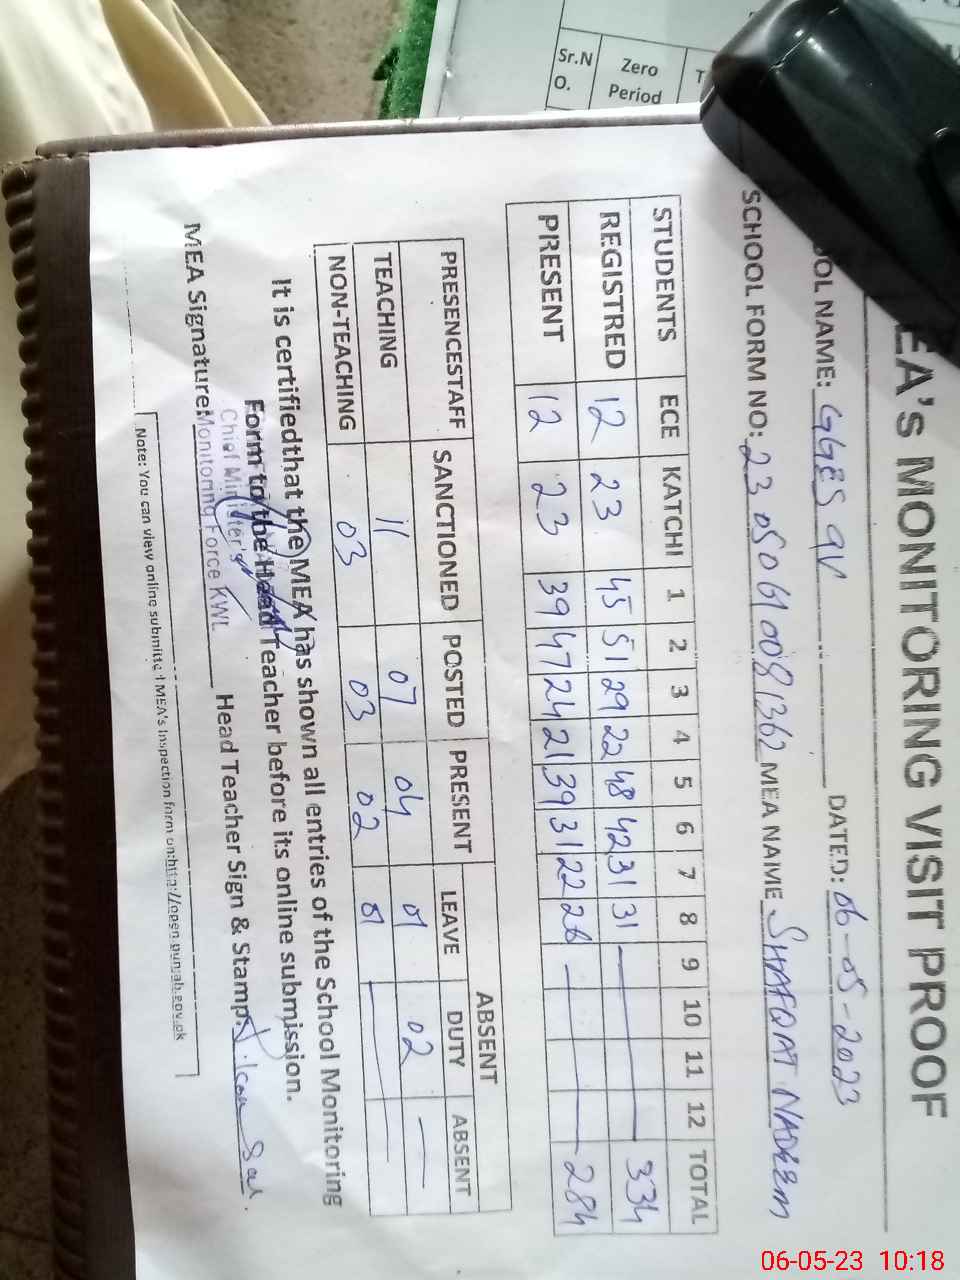 Sr.N
O.
Zero
Period
EA's MONITORING VISIT PROOF
OOL NAME: GGES 9V DATED: 06-05-2023
SCHOOL FORM NO: MEA NAME SHAFQAT NADEEM
STUDENTS ECE KATCHI 1 2 3 4 5 6 7 8 9 10 11 12 TOTAL
REGISTRED 12 23 45 51 29 22 48 42 31 31 — 334
PRESENT 12 23 39 47 24 21 39 31 22 26 — 284
PRESENCESTAFF SANCTIONED POSTED PRESENT ABSENT
LEAVE DUTY ABSENT
TEACHING 11 07 04 01 02 —
NON-TEACHING 03 03 02 01 —
It is certifiedthat the MEA has shown all entries of the School Monitoring
Form to the Head Teacher before its online submission.
Chief Minister's
Monitoring Force KWL
MEA Signature: Head Teacher Sign & Stamp:
Note: You can view online submitted MEA's Inspection form on:http://open.punjab.gov.pk
06-05-23 10:18